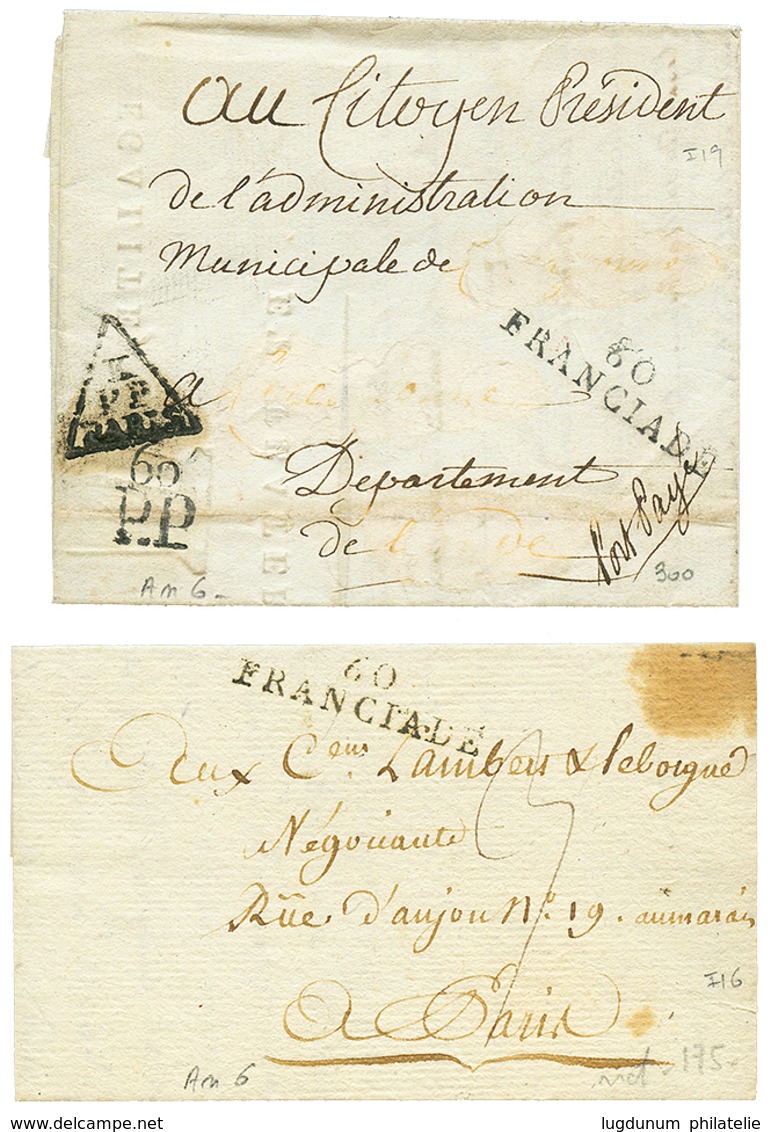 Au Citoyen Président
I19
de l'administration
Municipale de
60
FRANCIADE
K
P.P
PARIS
a
60
P.P
Département
de
Port Payé
An 6
300
60
FRANCIADE
Aux Cens Lambert & leborgne
Négociants
Rüe d'anjou No. 19. au marais
I16
A Paris
An 6
175-
www.delcampe.net
lugdunum philatelie